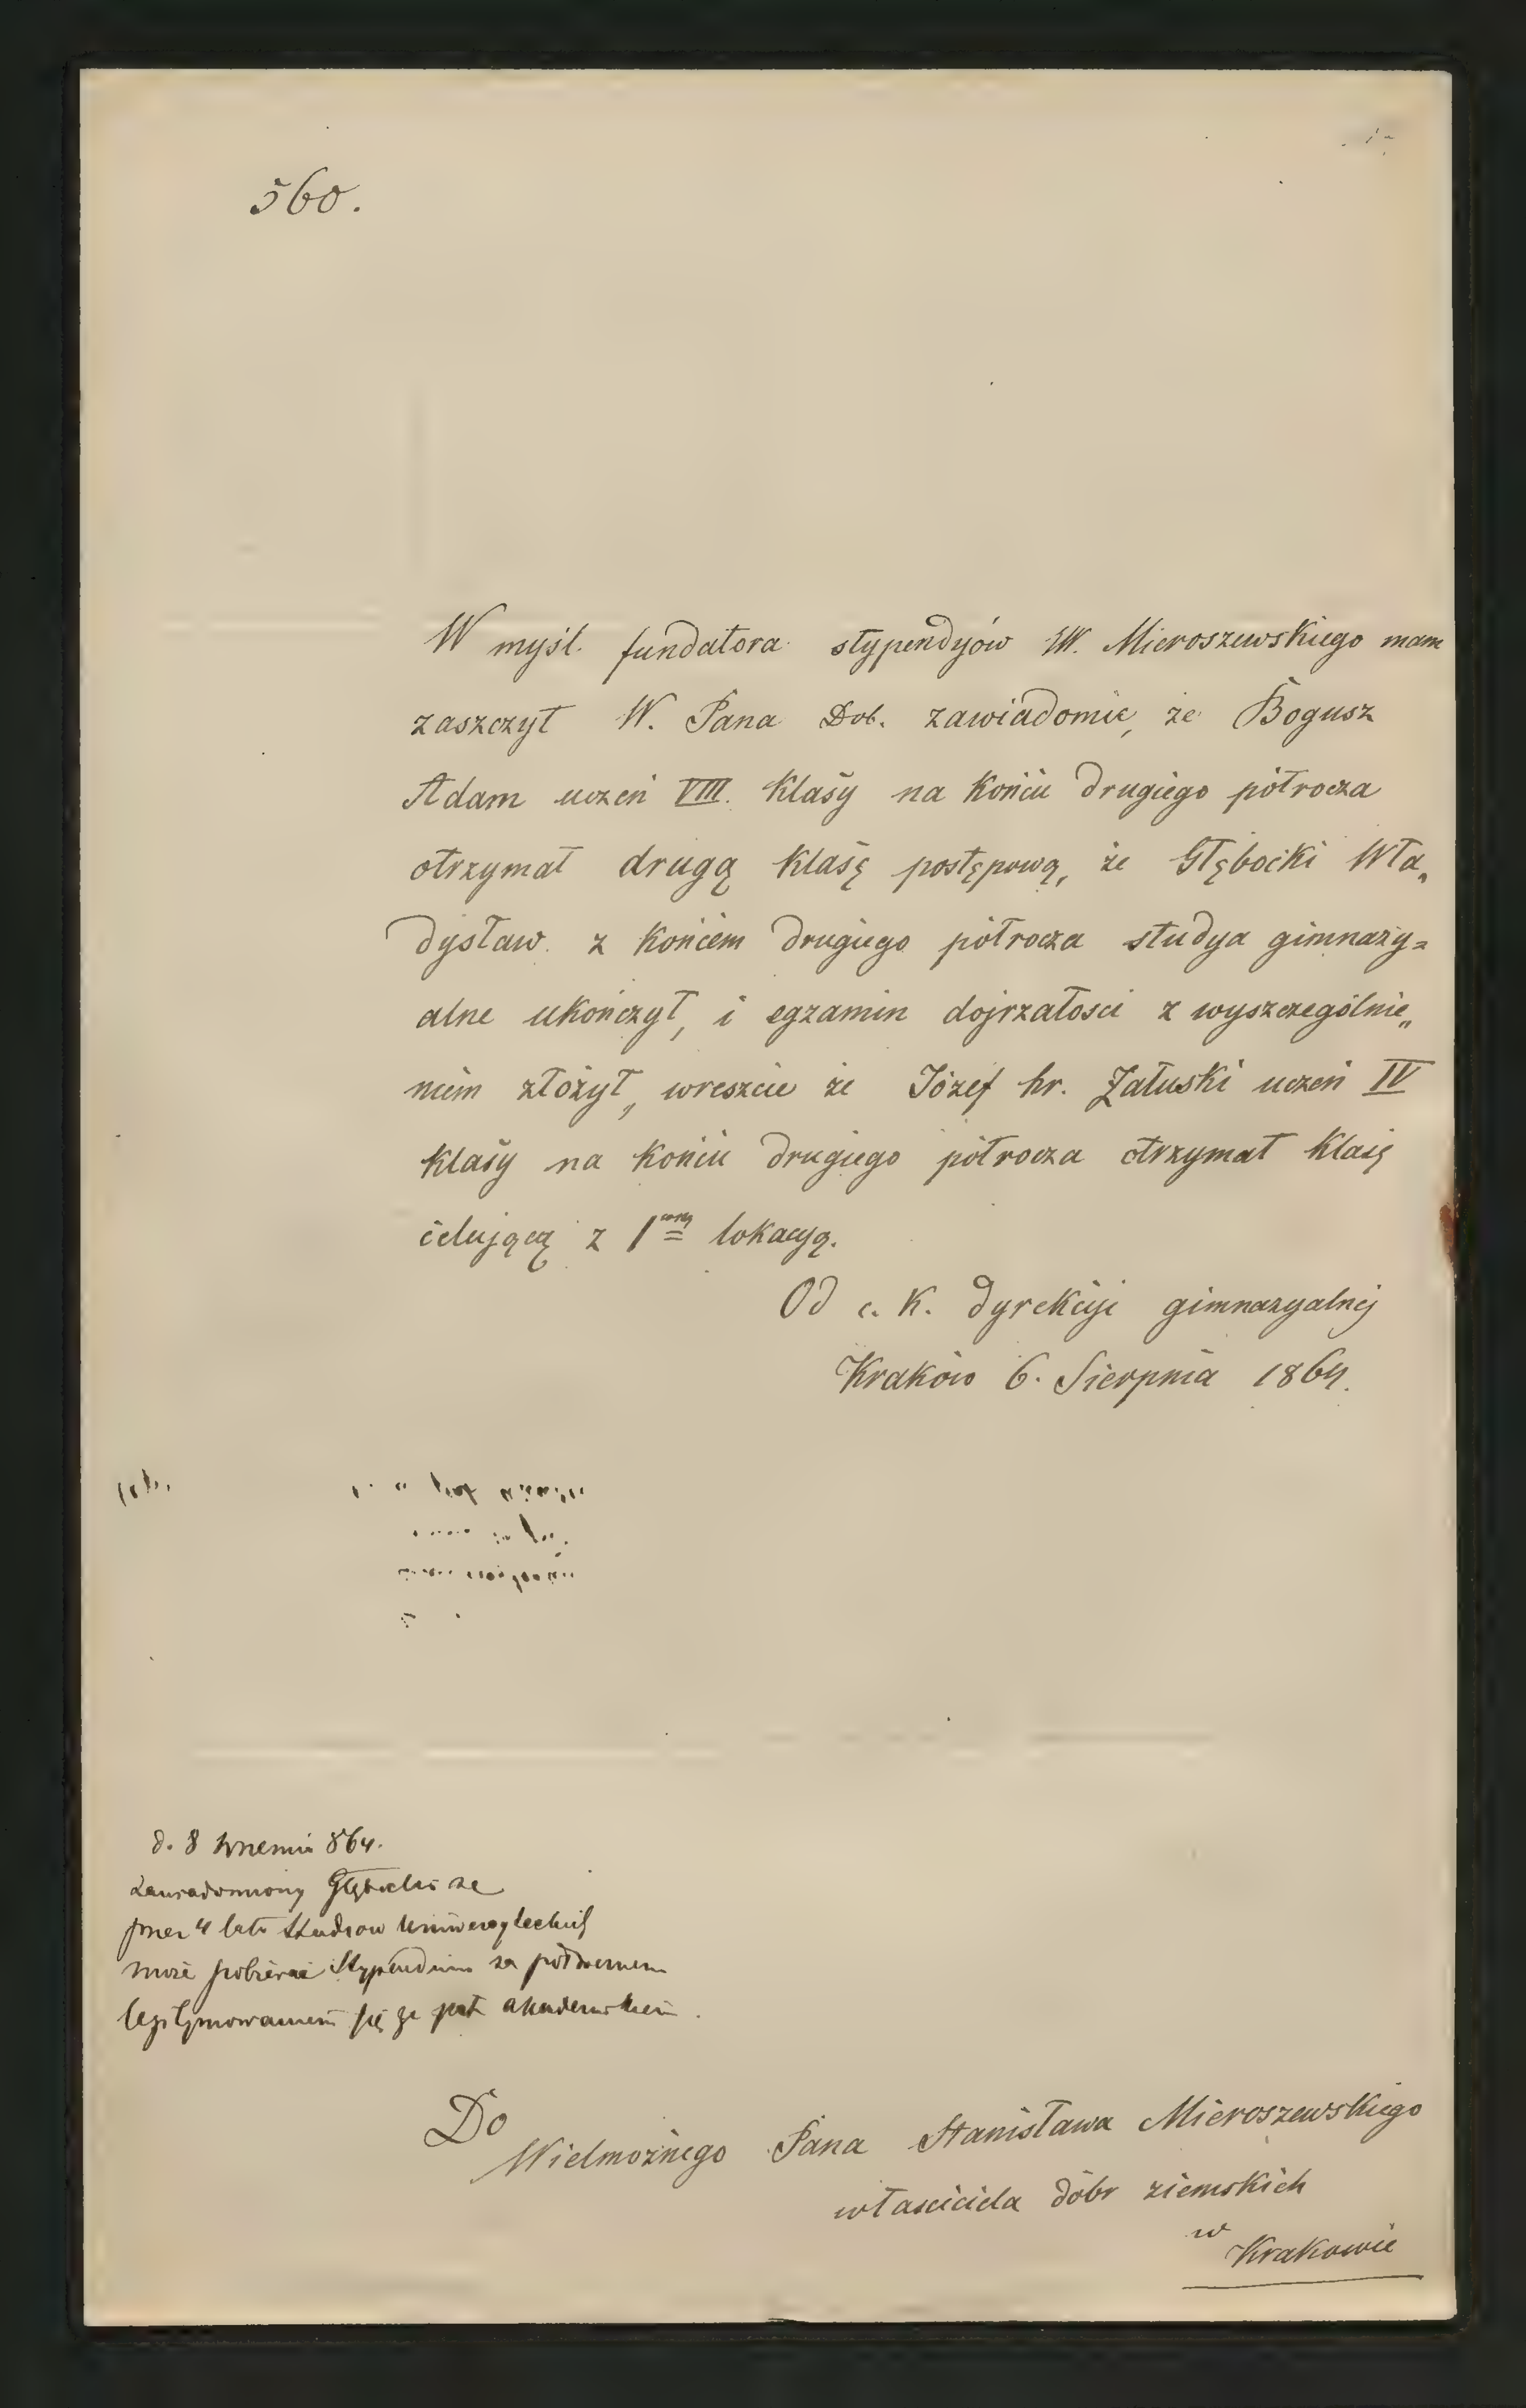 560.
W myśl fundatora stypendyów W. Mieroszewskiego mam
zaszczyt W. Pana Dob. zawiadomić, że Bogusz
Adam uczeń VIII. klasy na końcu drugiego półrocza
otrzymał drugą klasę postępową, że Głębocki Wła„
dysław z końcem drugiego półrocza studya gimnazy=
alne ukończył, i egzamin dojrzałości z wyszczególnie„
niem złożył, wreszcie że Józef hr. Załuski uczeń IV
klasy na końcu drugiego półrocza otrzymał klasę
celującą z 1wszą lokacyą.
Od c. k. dyrekcyi gimnazyalnej
Kraków 6. Sierpnia 1864.
d. 8 Września 864.
Zawiadomiony Głębocki że
przez 4 lata Studiów Uniwersyteckich
może pobierać Stypendium za
legitymowaniem się ze akademickiem.
Do
Wielmożnego Pana Stanisława Mieroszewskiego
właściciela dóbr ziemskich
w Krakowie